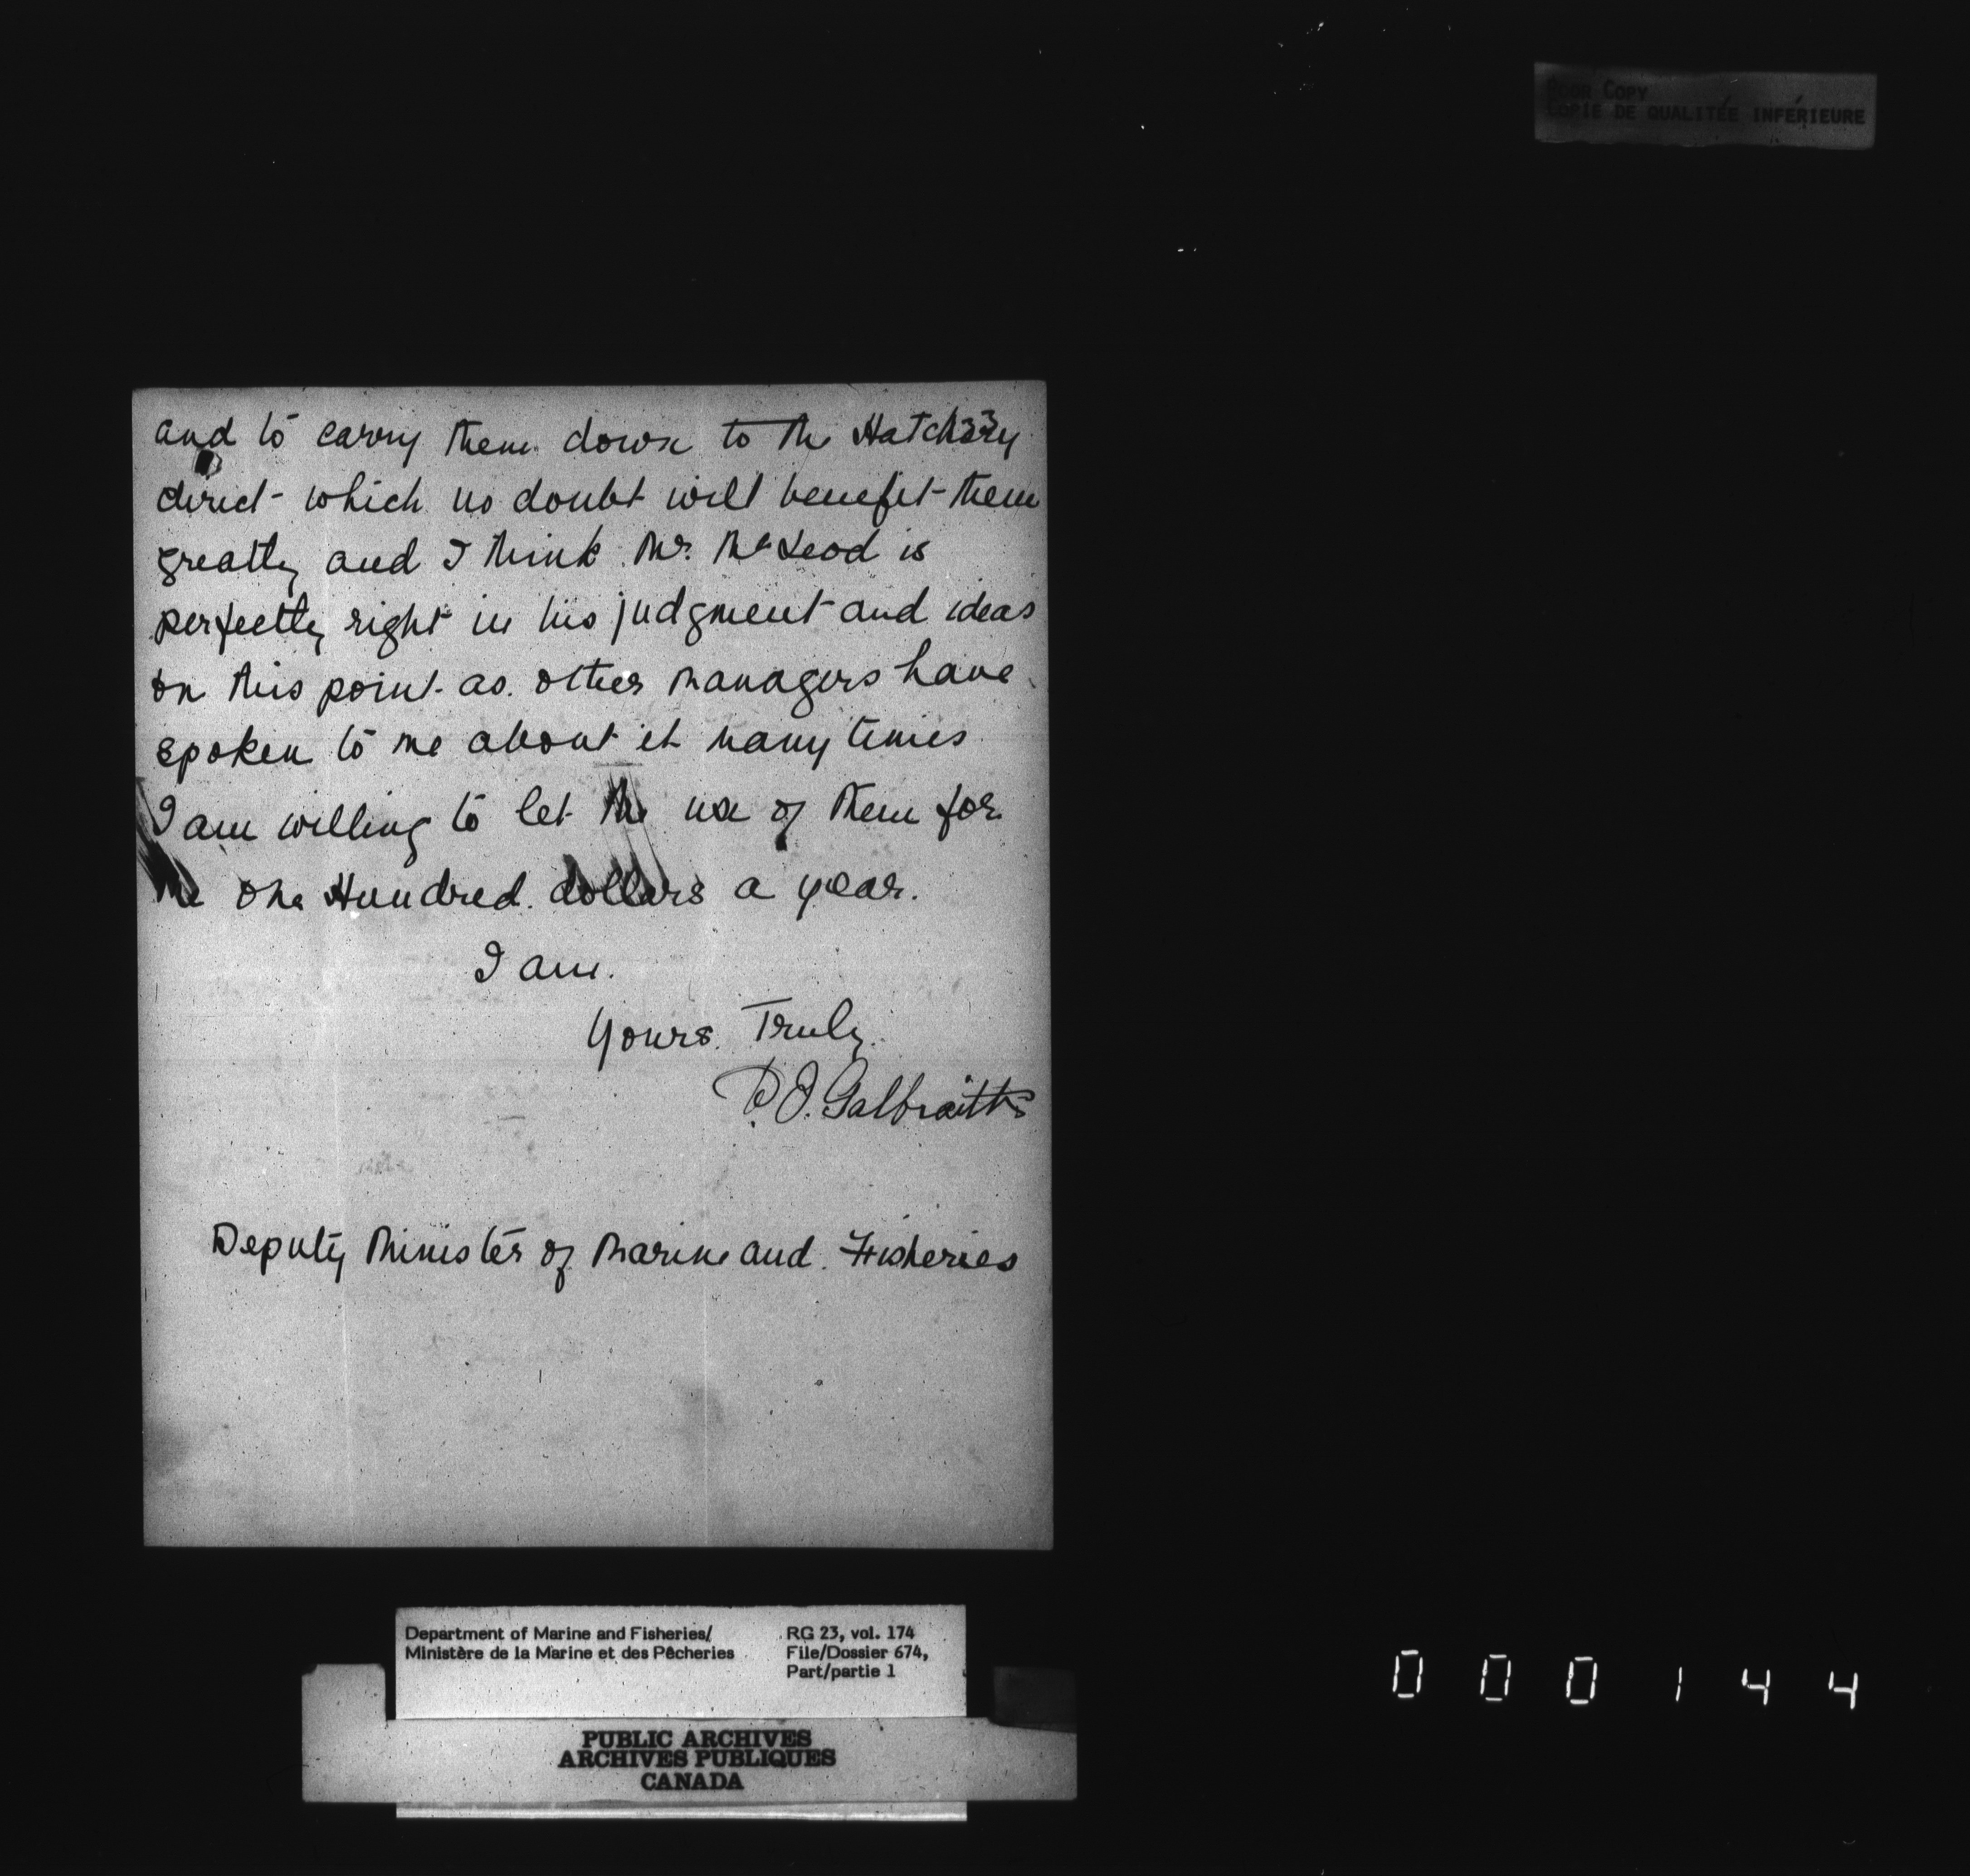 POOR COPY
COPIE DE QUALITÉE INFÉRIEURE
33
and to carry them down to the Hatchery
direct which no doubt will benefit them
greatly and I think Mr. McLeod is
perfectly right in his judgment and ideas
on this point as other managers have
spoken to me about it many times
I am willing to let the use of them for
the one Hundred dollars a year.
I am.
Yours Truly.
Galbraith
Deputy Minister of Marine and Fisheries
Department of Marine and Fisheries/ RG 23, vol. 174
Ministère de la Marine et des Pêcheries File/Dossier 674,
Part/partie 1
PUBLIC ARCHIVES
ARCHIVES PUBLIQUES
CANADA
000144